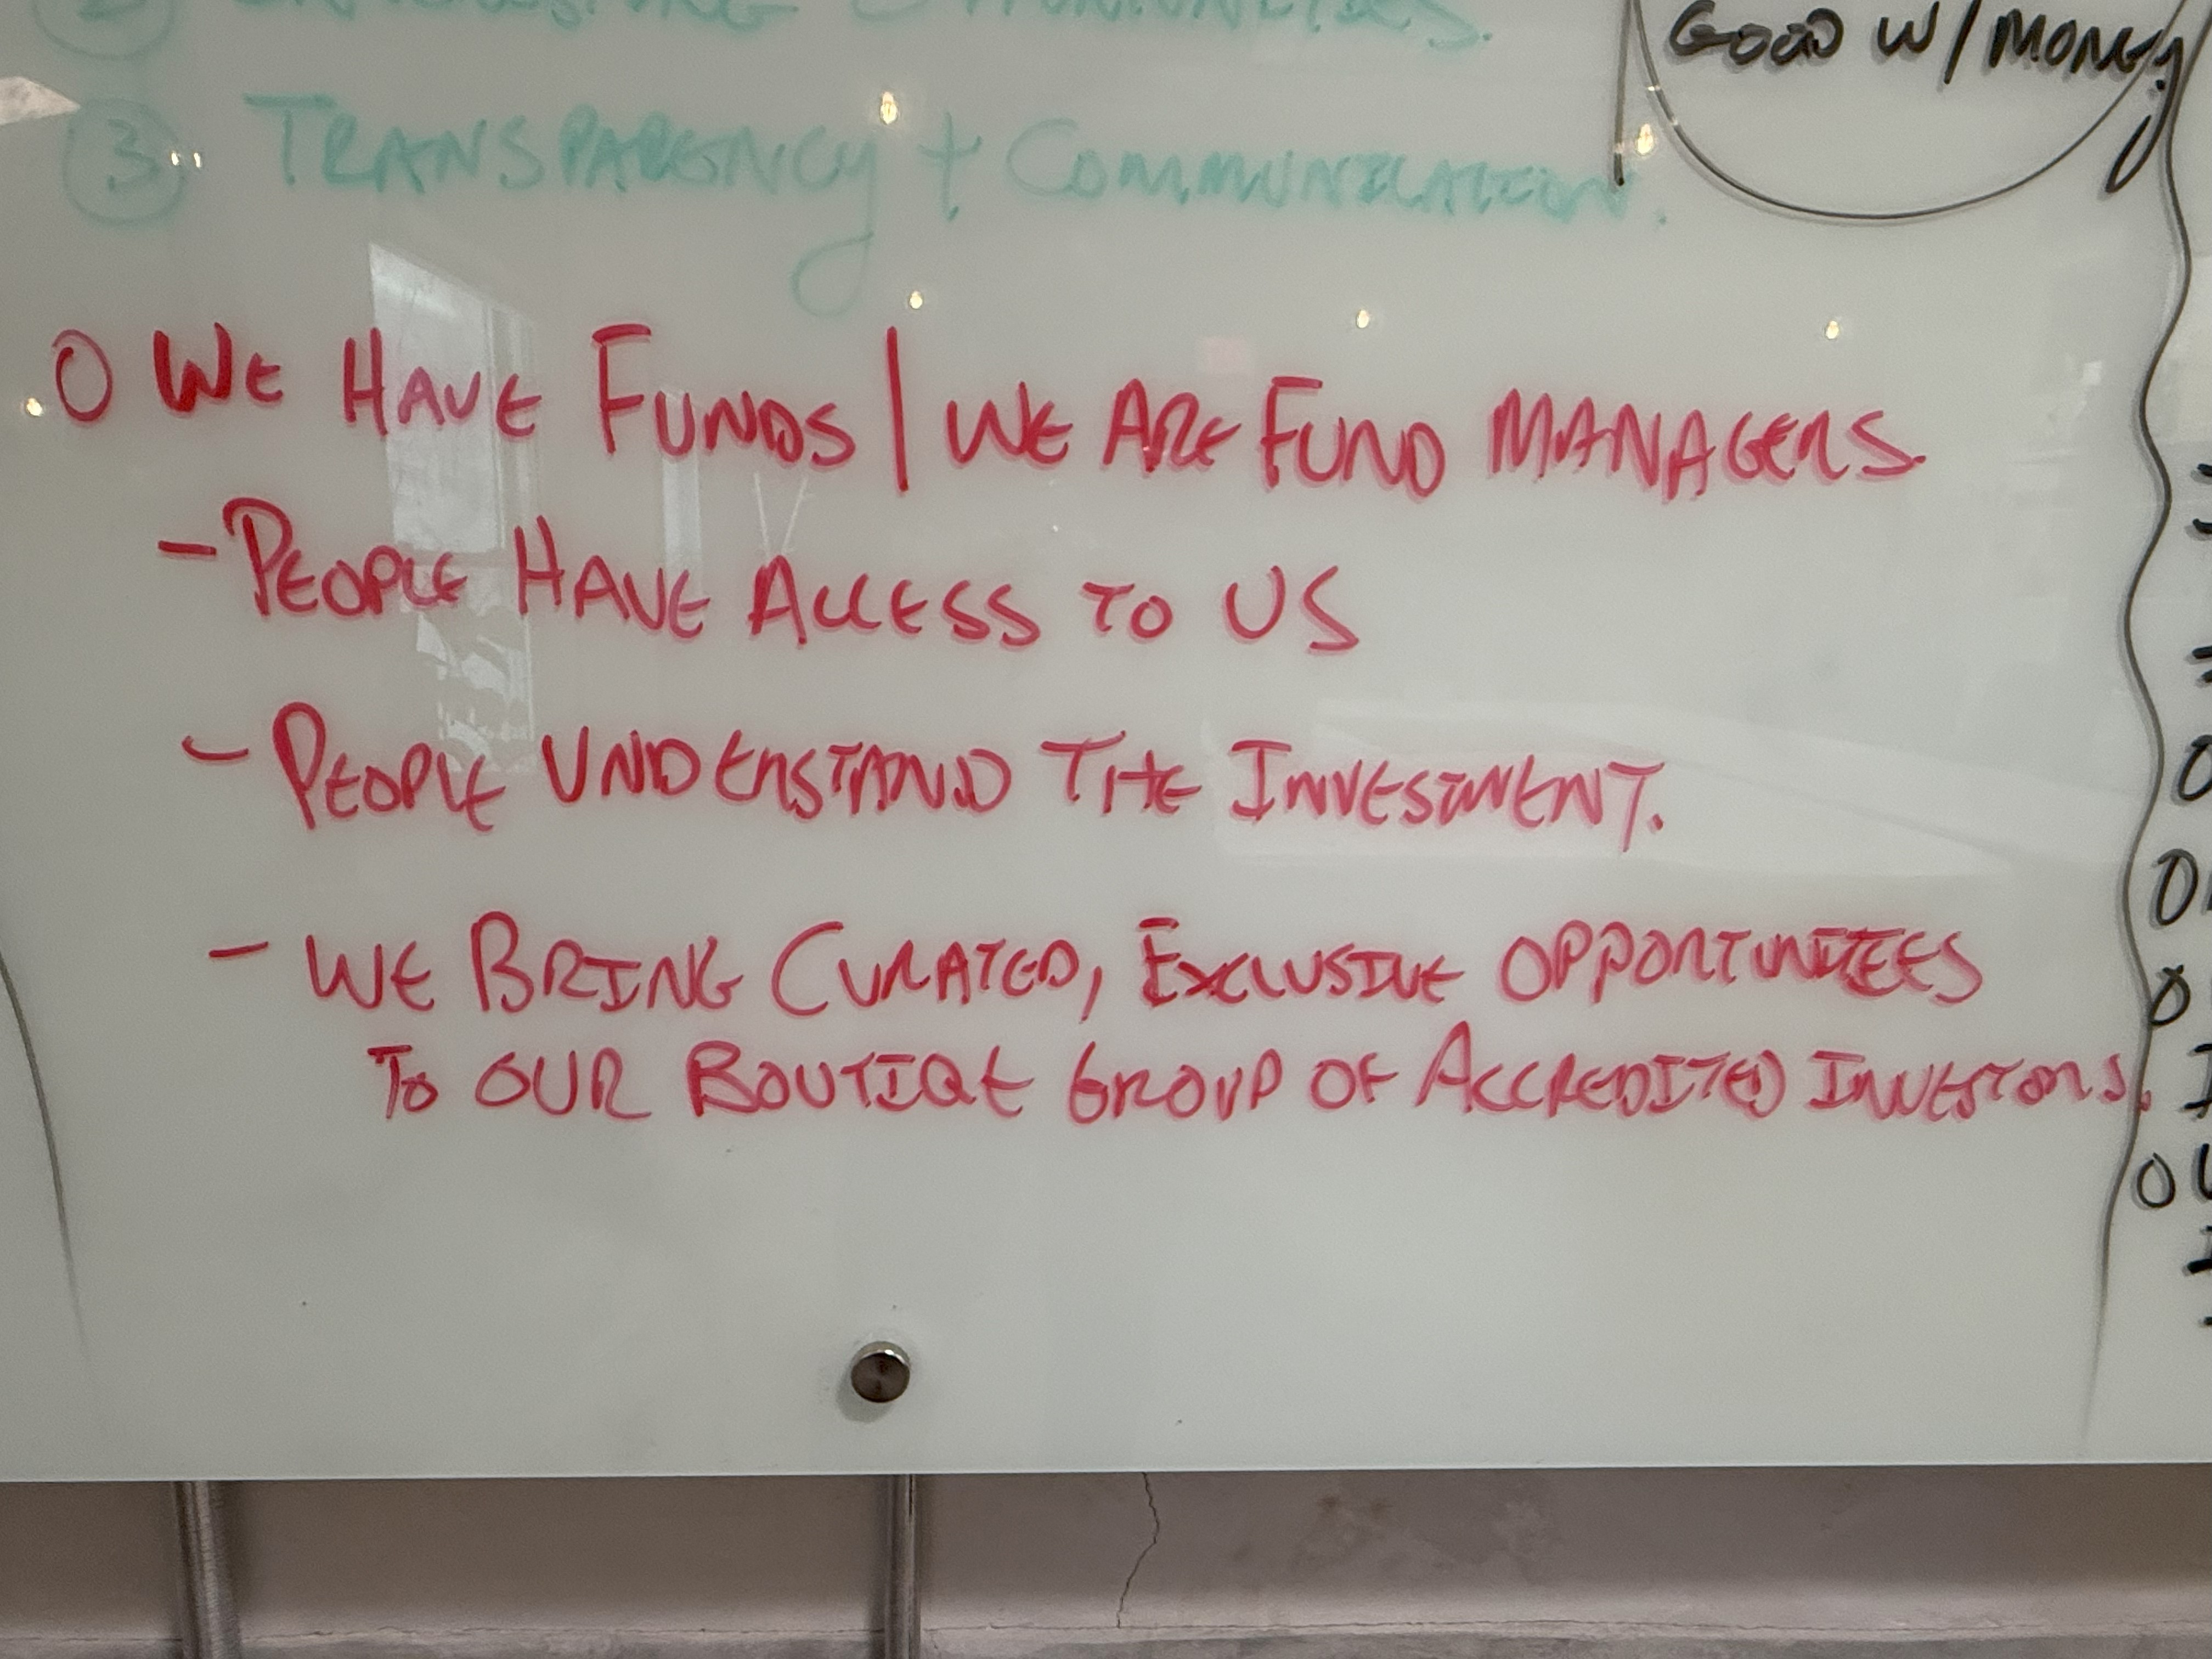 ③ TRANSPARENCY + COMMUNICATION.
GOOD W/ MONEY
O WE HAVE FUNDS | WE ARE FUND MANAGERS.
- PEOPLE HAVE ACCESS TO US
- PEOPLE UNDERSTAND THE INVESTMENT.
- WE BRING CURATED, EXCLUSIVE OPPORTUNITIES
TO OUR BOUTIQE GROUP OF ACCREDITED INVESTORS.